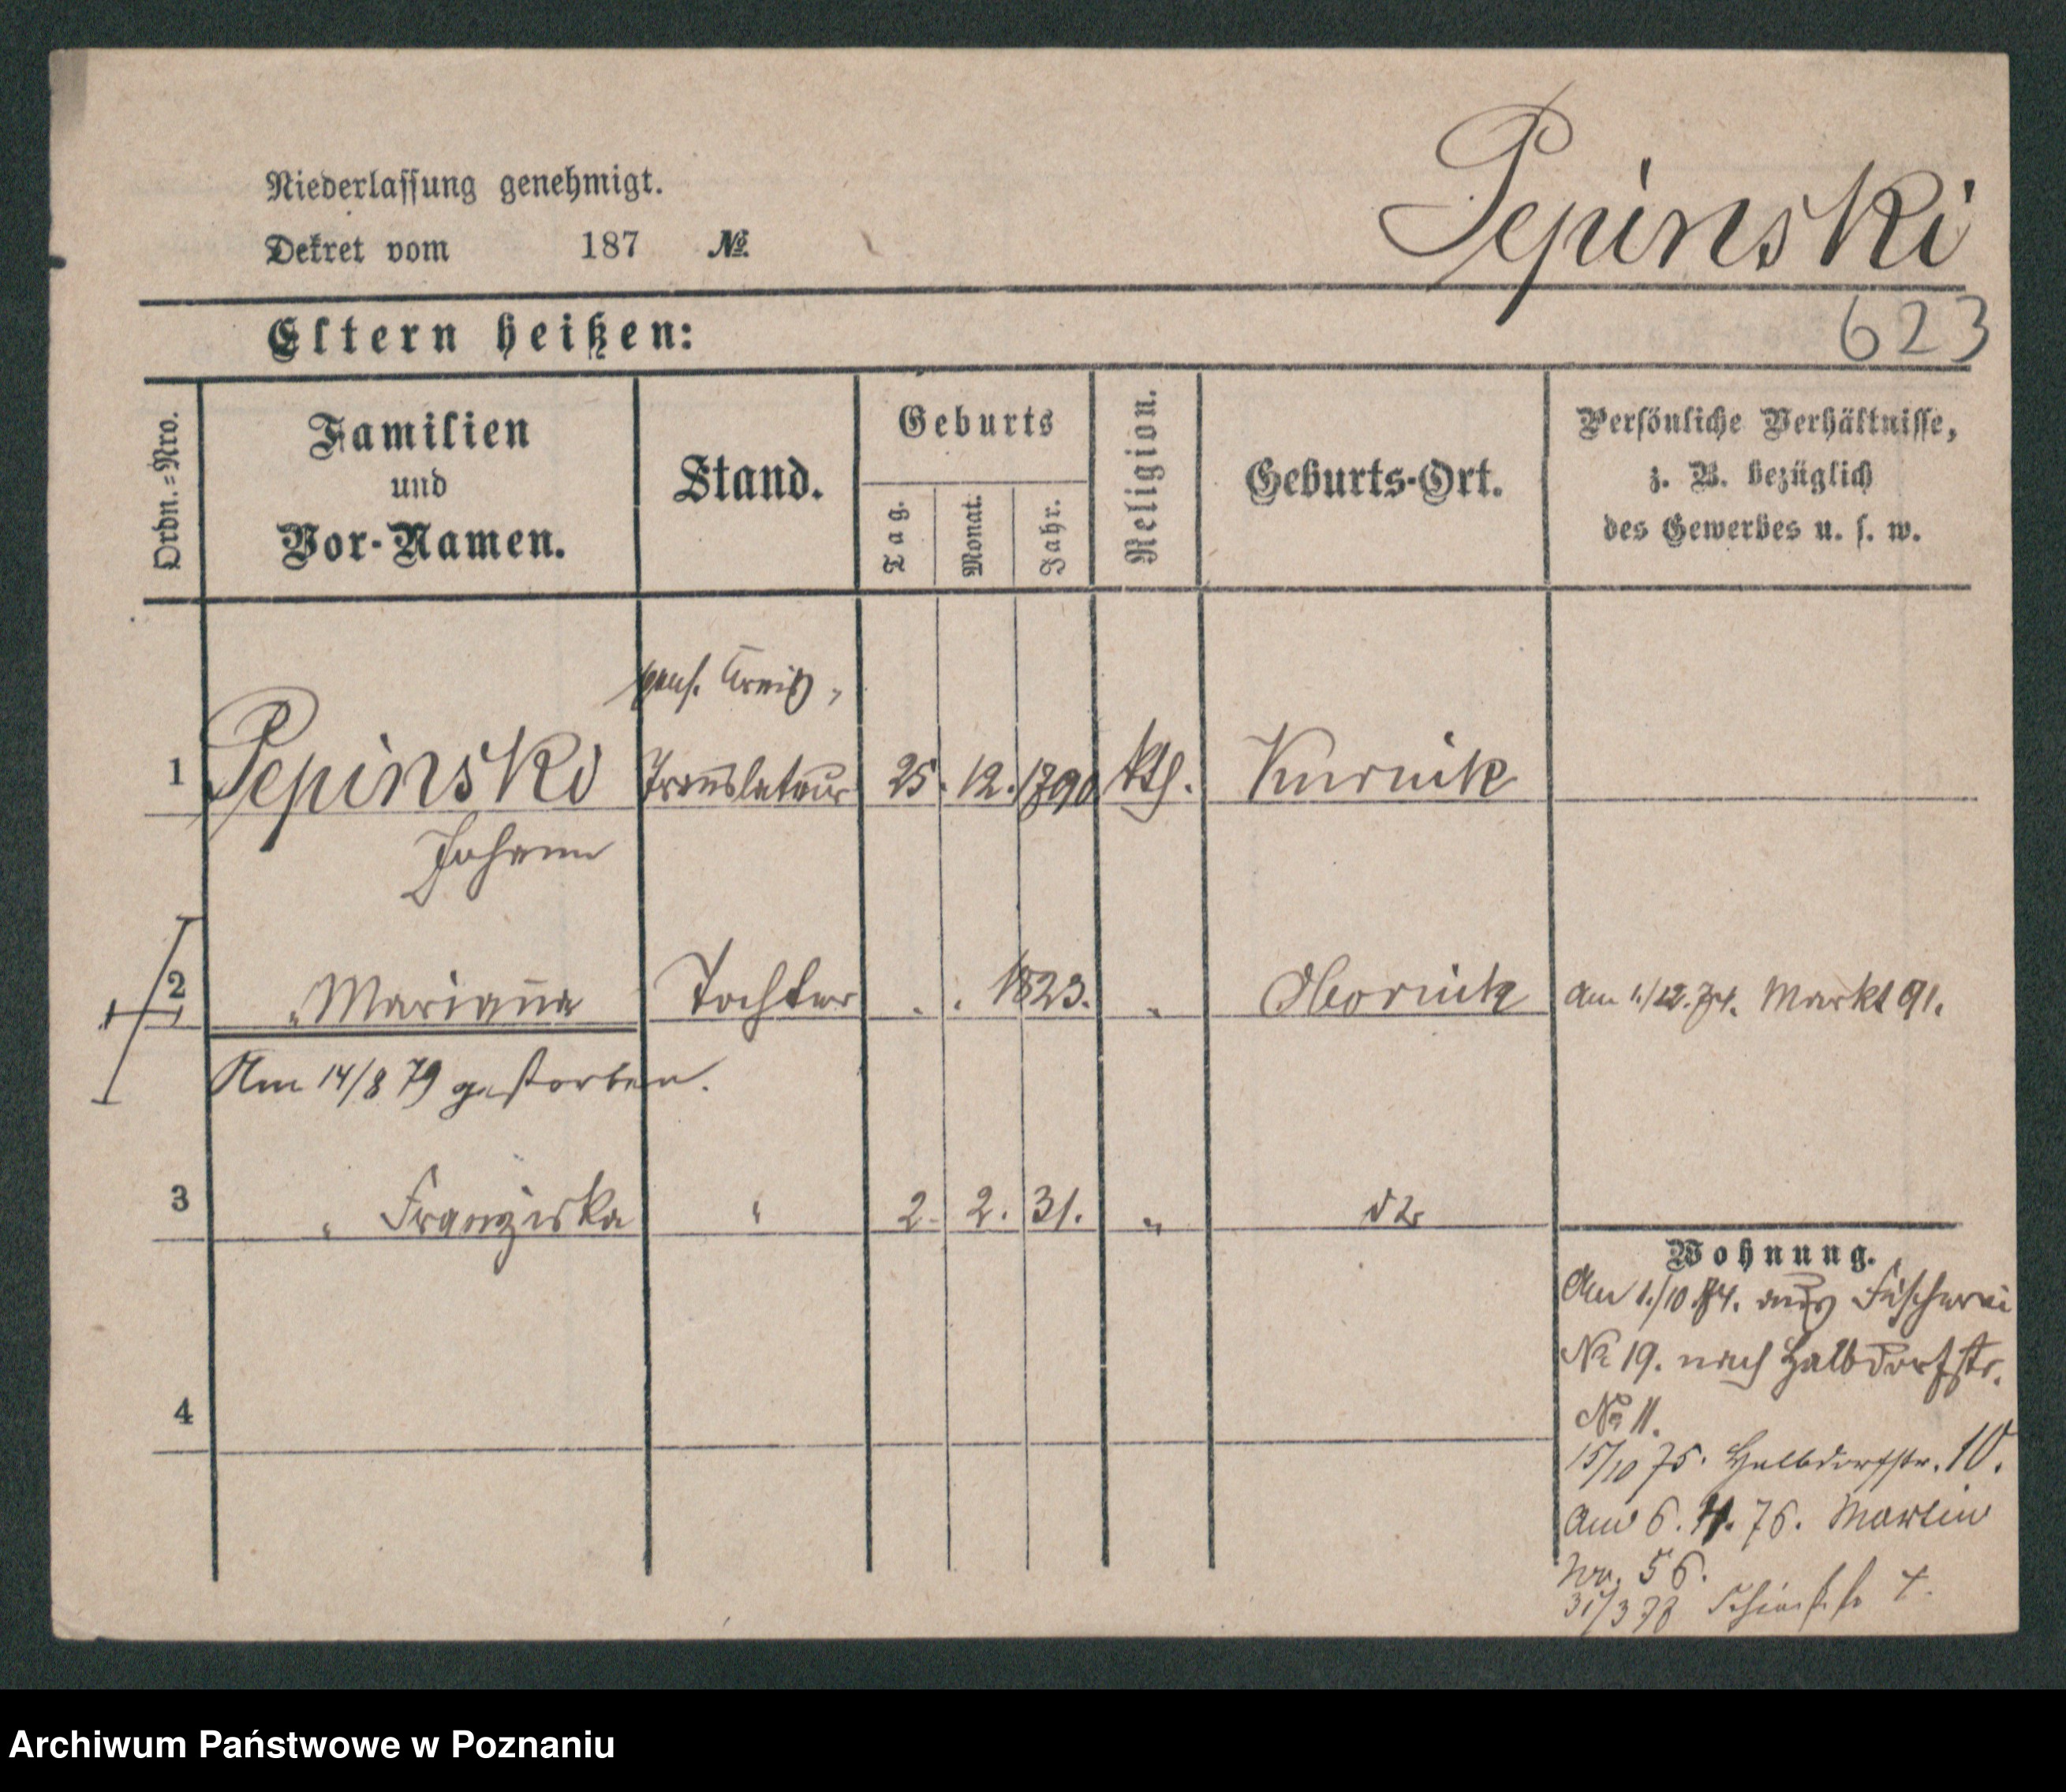 Pepinski
Niederlassung genehmigt.
Dekret vom 187 №
623
Eltern heißen:
Ordn.=Nro.
Familien
und
Vor-Namen.
Stand.
Geburts
Tag.
Monat.
Jahr.
Religion.
Geburts-Ort.
Persönliche Verhältnisse,
z. B. bezüglich
des Gewerbes u. s. w.
pens. Kreis-
1 Pepinski Translateur 25. 12. 1790 kth. Kurnik
Johann
2 " Marianna Tochter . . 1823. " Obornik Am 1./12. 74. Markt 91.
Am 14/8 79 gestorben.
3 " Franziska " 2. 2. 31. " do
Wohnung.
Am 1./10 74. aus Fischerei
No 19. nach Halbdorfstr.
No 11.
15/10 75. Halbdorfstr. 10.
4
Am 6. 4. 76. Martin
Nro. 56.
31/3 78
Archiwum Państwowe w Poznaniu